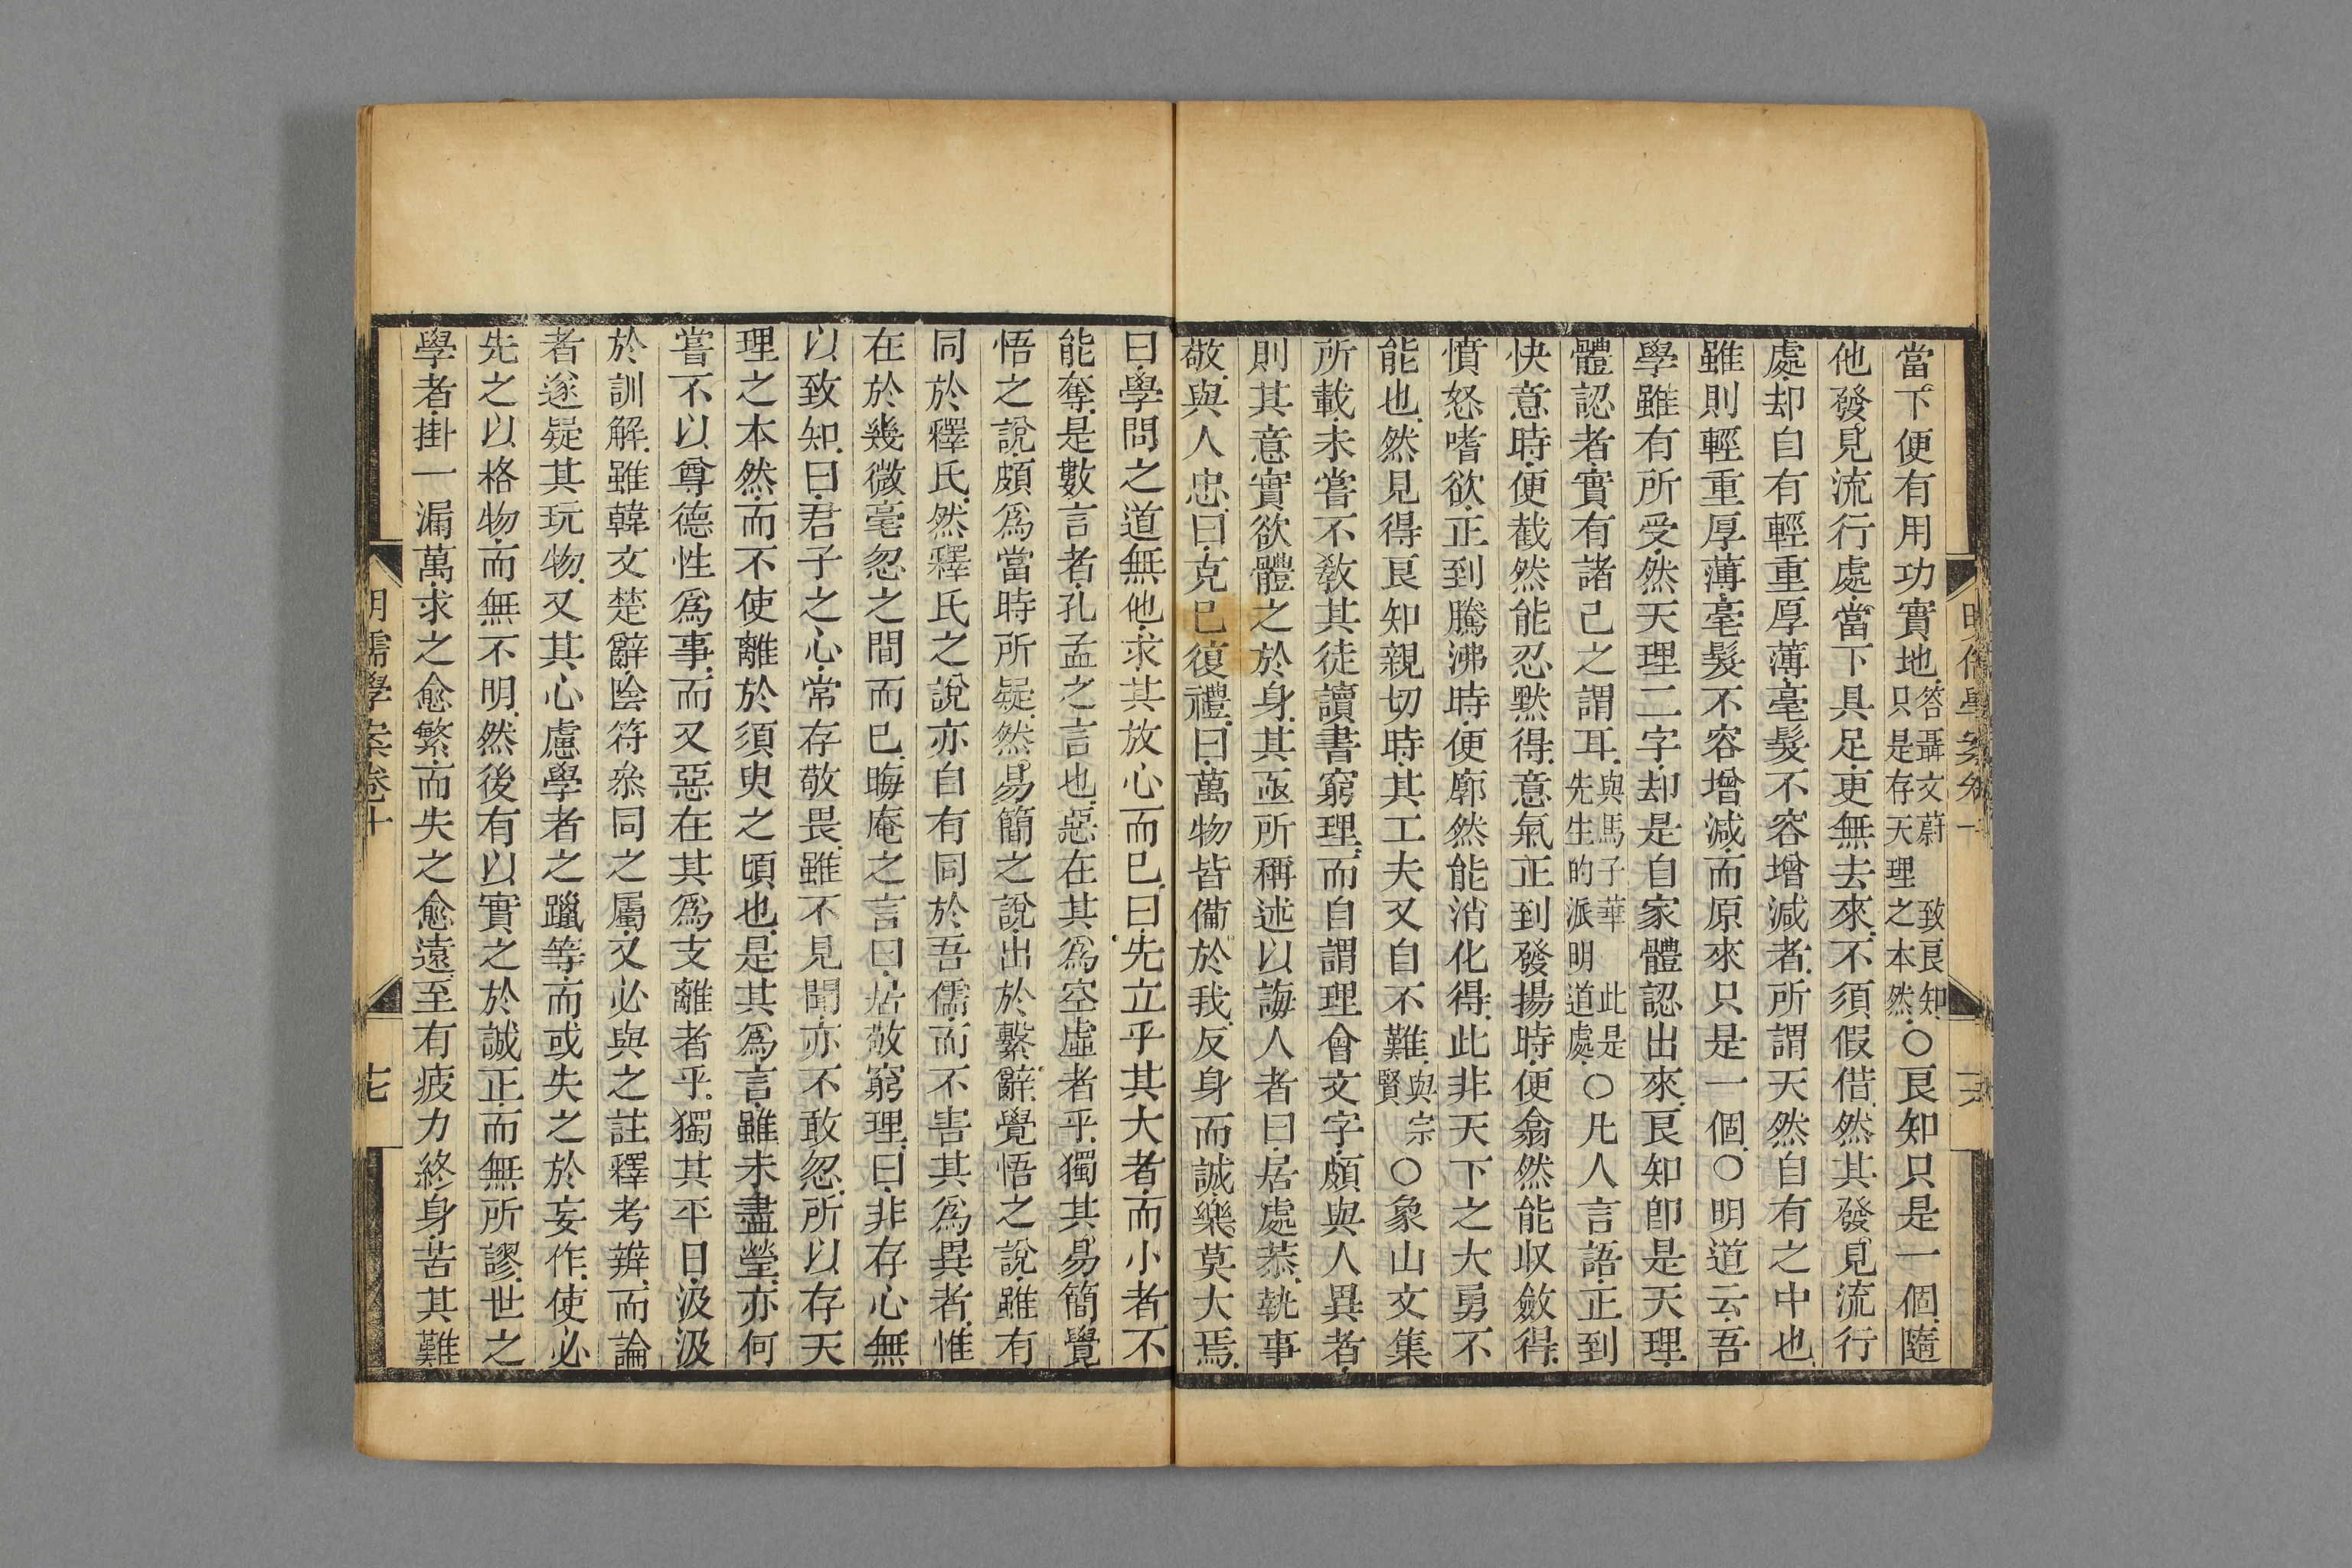 當下便有用功實地答聶文蔚致良知只是存天理之本然○良知只是一個隨
他發見流行處當下具足更無去來不須假借然其發見流行
處却自有輕重厚薄毫髮不容增減者所謂天然自有之中也
雖則輕重厚薄毫髮不容增減而原來只是一個○明道云吾
學雖有所受然天理二字却是自家體認出來良知卽是天理
體認者實有諸己之謂耳與馬子華此是先生的派明道處○凡人言語正到
快意時便截然能忍默得意氣正到發揚時便翕然能收斂得
憤怒嗜欲正到騰沸時便廓然能消化得此非天下之大勇不
能也然見得良知親切時其工夫又自不難與宗賢○象山文集
所載未嘗不敎其徒讀書窮理而自謂理會文字頗與人異者
則其意實欲體之於身其亟所稱述以誨人者曰居處恭執事
敬與人忠曰克己復禮曰萬物皆備於我反身而誠樂莫大焉
曰學問之道無他求其放心而已曰先立乎其大者而小者不
能奪是數言者孔孟之言也惡在其爲空虛者乎獨其易簡覺
悟之說頗爲當時所疑然易簡之說出於繫辭覺悟之說雖有
同於釋氏然釋氏之說亦自有同於吾儒而不害其爲異者惟
在於幾微毫忽之間而已晦庵之言曰居敬窮理曰非存心無
以致知曰君子之心常存敬畏雖不見聞亦不敢忽所以存天
理之本然而不使離於須臾之頃也是其爲言雖未盡瑩亦何
嘗不以尊德性爲事而又惡在其爲支離者乎獨其平日汲汲
於訓解雖韓文楚辭陰符叅同之屬又必與之註釋考辨而論
者遂疑其玩物又其心慮學者之躐等而或失之於妄作使必
先之以格物而無不明然後有以實之於誠正而無所謬世之
學者掛一漏萬求之愈繁而失之愈遠至有疲力終身苦其難
明儒學案卷十
十七